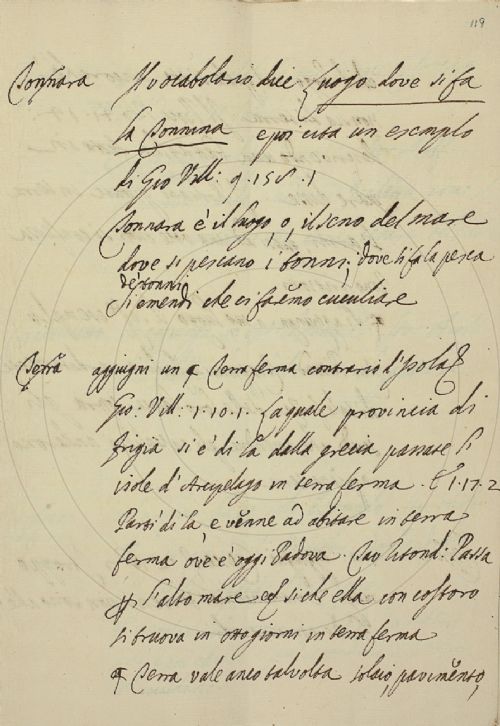 119
Tonnara Il vocabolario dice Luogo dove si fa
la Tonnina e poi cita un esempio
di Gio Vill: 9. 158. 1
Tonnara è il luogo, o, il seno del mare
dove si pescano i tonni; dove si fa la pesca
de' tonni
Si emendi che ci fa
Terra aggiugni un ¶ Terra ferma contrario d'Isola
Gio: Vill: 1. 10. 1. La quale provincia di
frigia si è di la dalla grecia passate l'
isole d'Arcipelago in terra ferma. E 1. 17. 2
Partì di la e venne ad abitare in terra
ferma ov'è è oggi Padova. Passa
l'alto mare si che ella con costoro
si truova in otto giorni in terra ferma
¶ Terra vale anco talvolta solaio, pavimento,